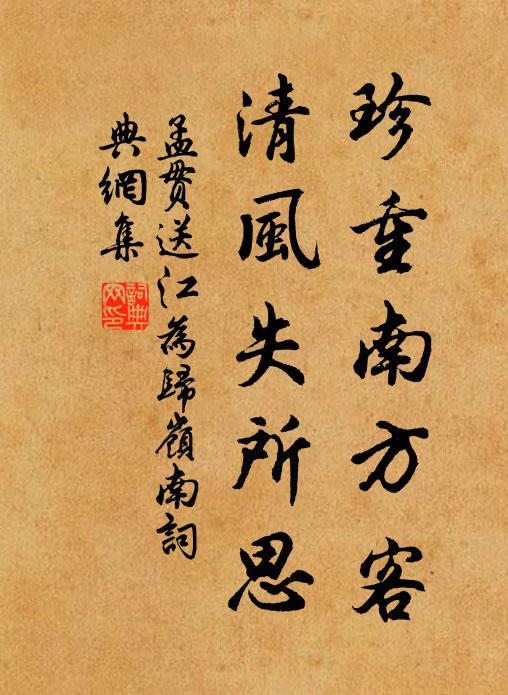 珍重南方客
清風失所思
孟貫送江為歸嶺南詞
典網集
詞典網印